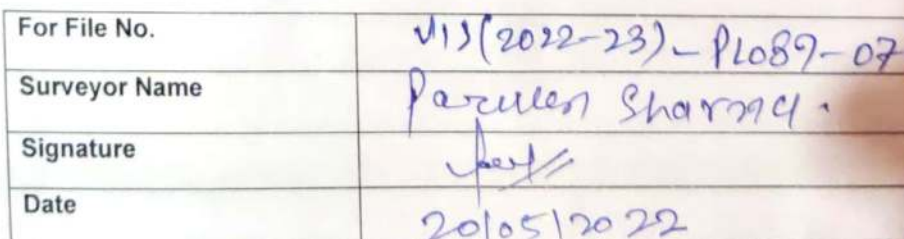 For File No. VIS(2022-23)-PL089-07
Surveyor Name Parveen Sharma.
Signature
Date 20/05/2022